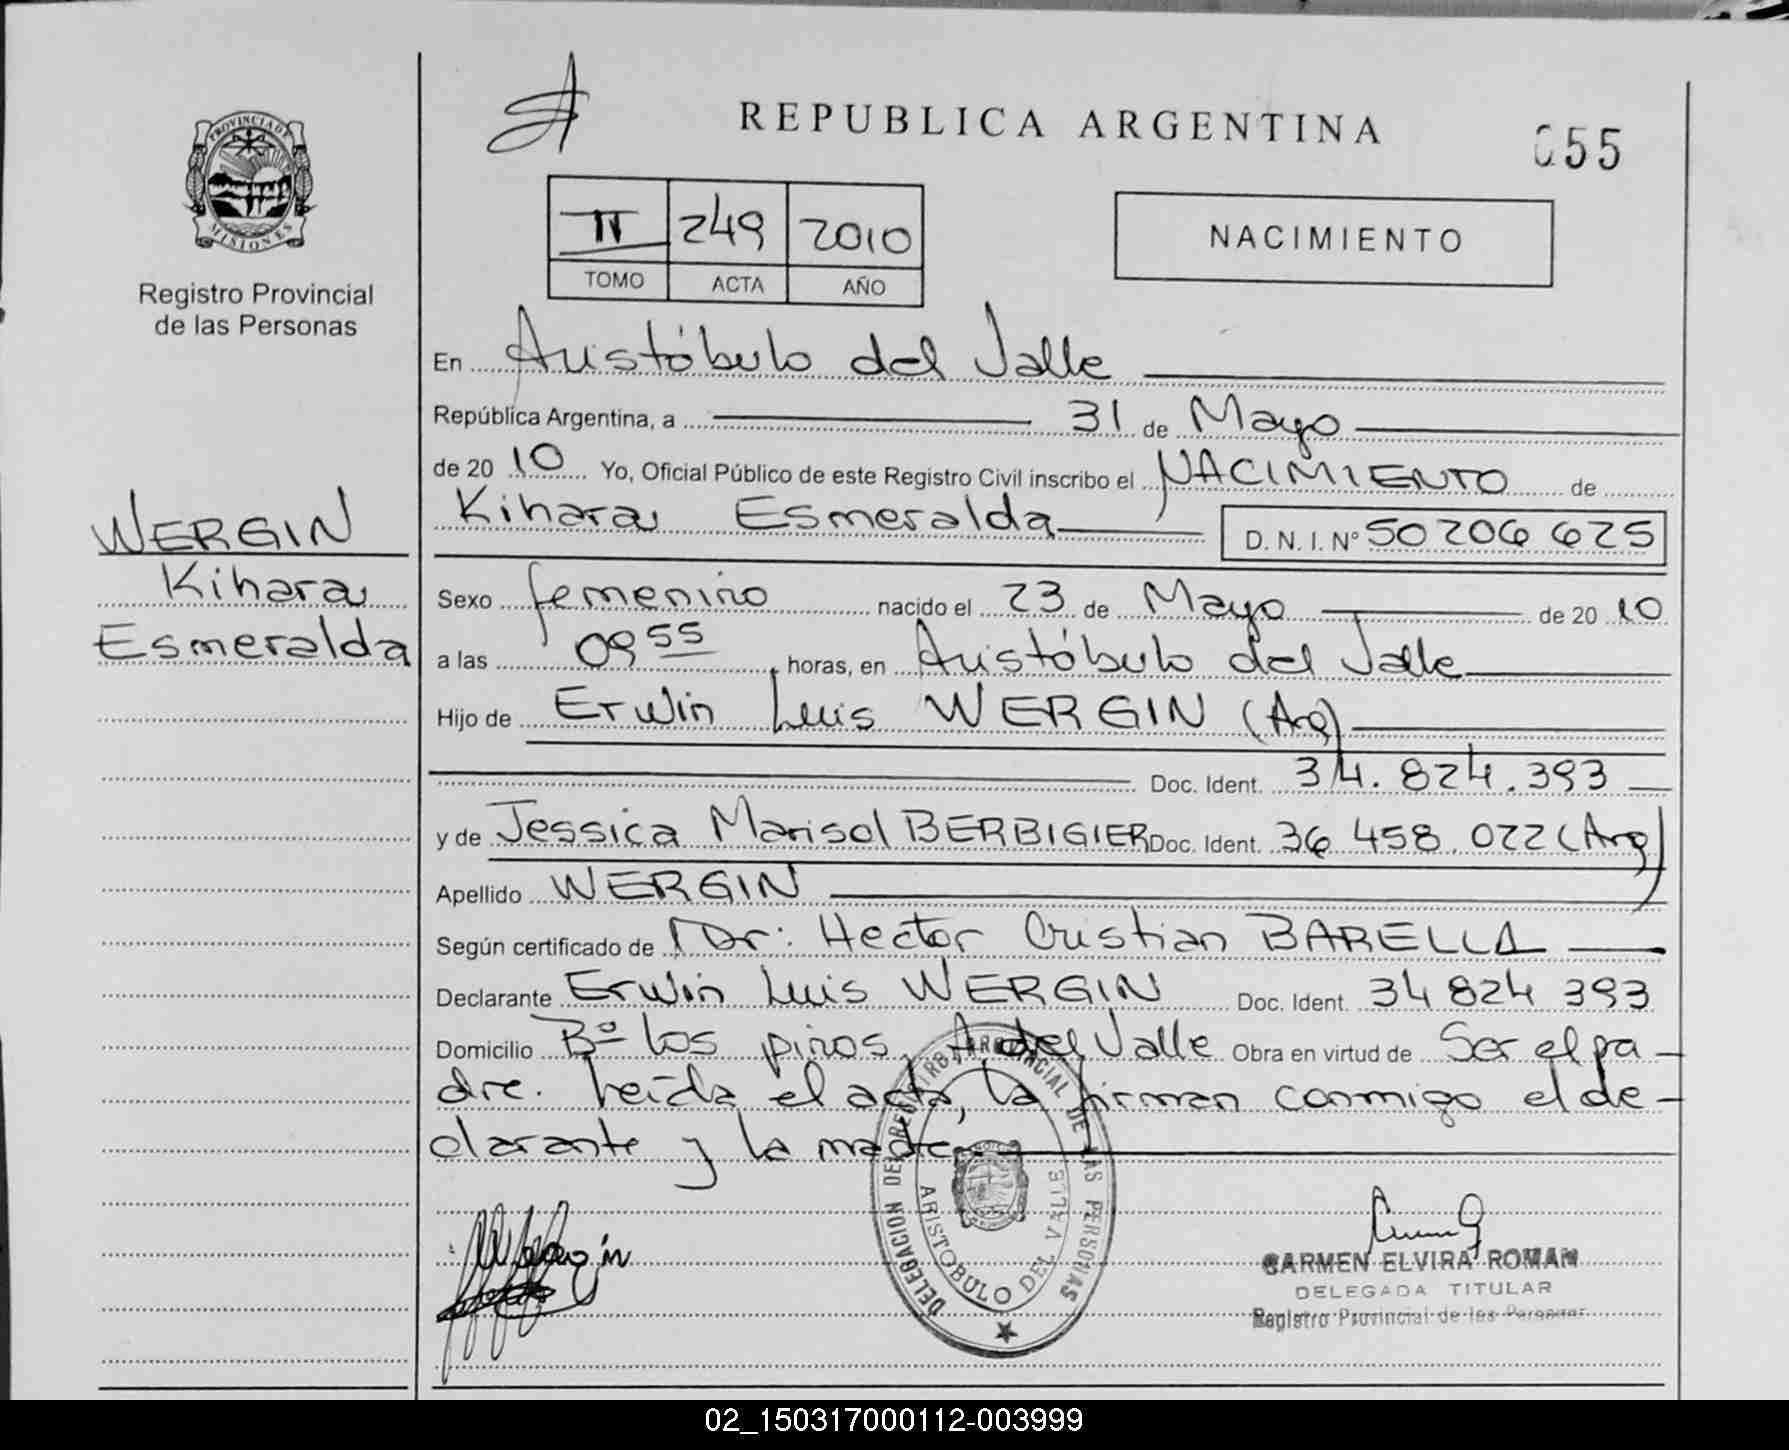 REPUBLICA ARGENTINA
055
PROVINCIA DE MISIONES
Registro Provincial
de las Personas
II 249 2010
TOMO ACTA AÑO
NACIMIENTO
En Aristóbulo del Valle
República Argentina, a 31 de Mayo
de 20 10 Yo, Oficial Público de este Registro Civil inscribo el NACIMIENTO de
Kihara Esmeralda D. N. I. Nº 50 206 625
WERGIN
Kihara
Esmeralda
Sexo femenino nacido el 23 de Mayo de 20 10
a las 09 55 horas, en Aristóbulo del Valle
Hijo de Erwin Luis WERGIN (Arg)
Doc. Ident. 34.824.393
y de Jessica Marisol BERBIGIER Doc. Ident. 36 458.022 (Arg)
Apellido WERGIN
Según certificado de Dr: Hector Cristian BARELLA
Declarante Erwin Luis WERGIN Doc. Ident. 34 824 393
Domicilio Bº los pinos, A. del Valle Obra en virtud de Ser el pa-
dre. Leída el acta, la firman conmigo el de-
clarante y la madre.
DELEGACION DEL REGISTRO PROVINCIAL DE LAS PERSONAS
ARISTOBULO DEL VALLE
CARMEN ELVIRA ROMAN
DELEGADA TITULAR
Registro Provincial de las Personas
02_150317000112-003999